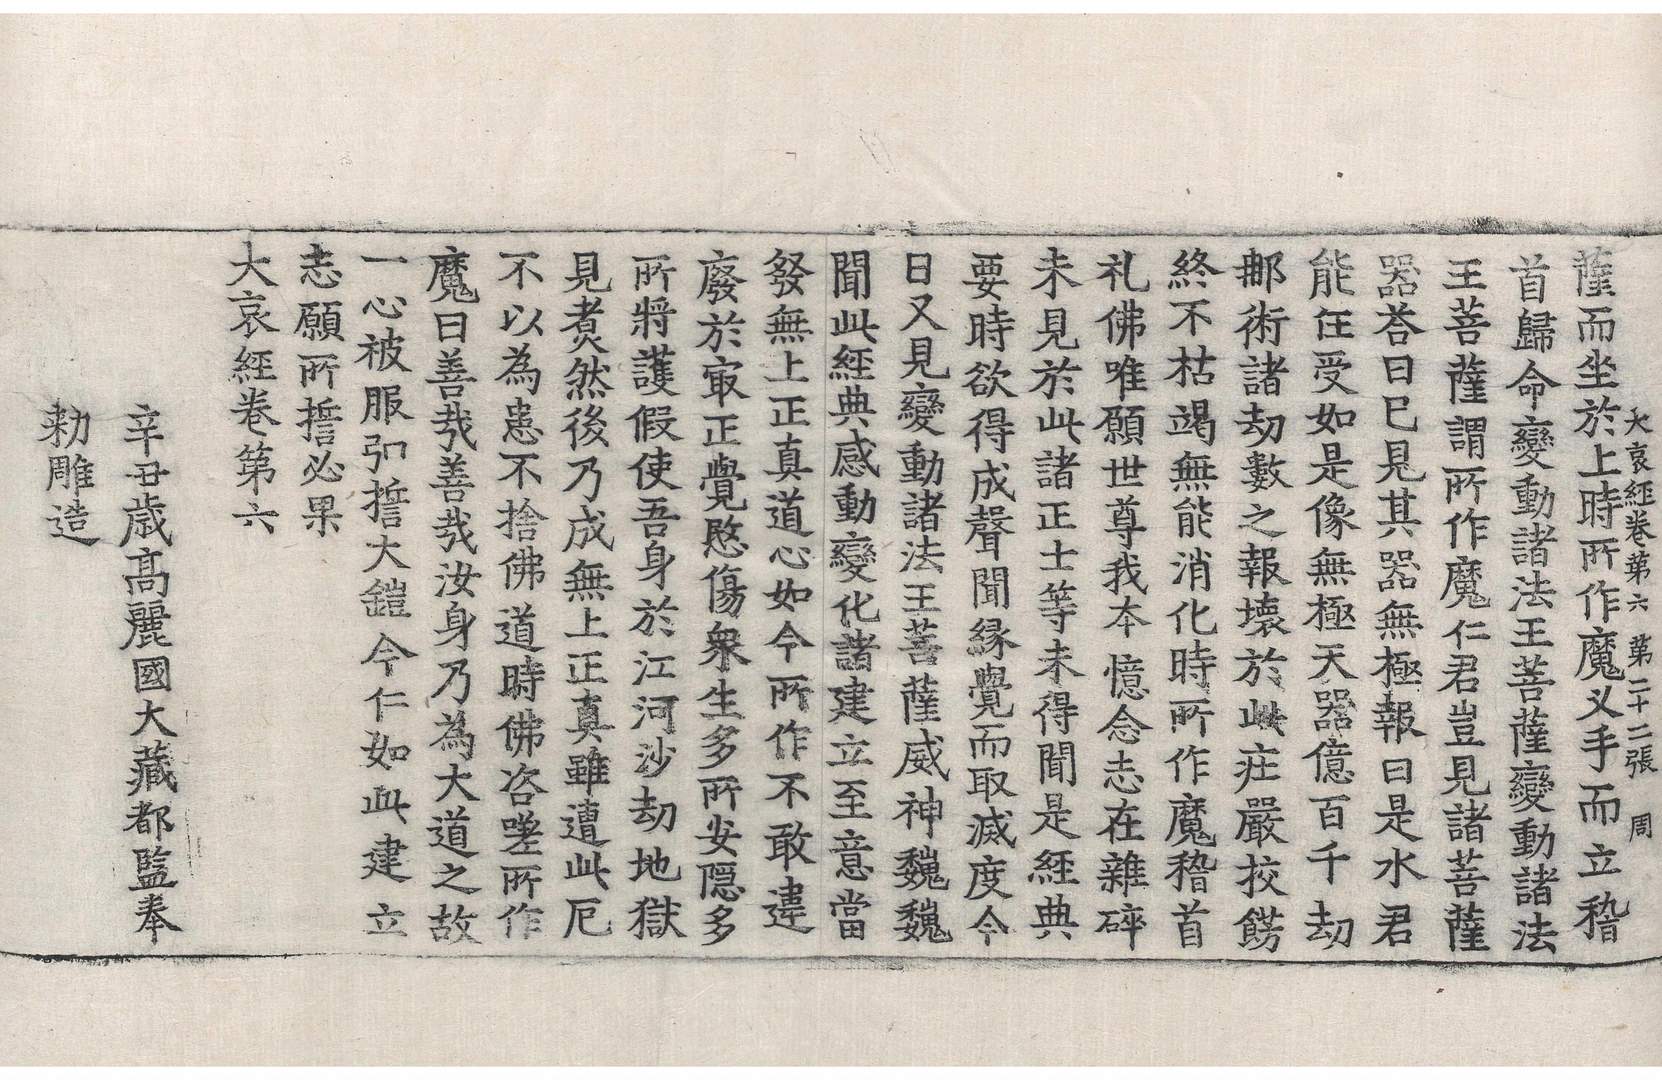 大哀經卷第六 第二十二張 周
薩而坐於上時所作魔叉手而立稽
首歸命變動諸法王菩薩變動諸法
王菩薩謂所作魔仁君豈見諸菩薩
器荅曰已見其器無極報曰是水君
能任受如是像無極天器億百千劫
鄉術諸劫數之報壞於此莊嚴挍餝
終不枯竭無能消化時所作魔稽首
礼佛唯願世尊我本憶念志在雜碎
未見於此諸正士等未得聞是經典
要時欲得成聲聞緣覺而取滅度今
日又見變動諸法王菩薩威神巍巍
聞此經典感動變化諸建立至意當
發無上正真道心如今所作不敢違
廢於㝡正覺愍傷衆生多所安隱多
所將護假使吾身於江河沙劫地獄
見煑然後乃成無上正真雖遭此厄
不以為患不捨佛道時佛咨嗟所作
魔曰善㢤善㢤汝身乃為大道之故
一心被服弘誓大鎧今仁如此建立
志願所誓必果
大哀經卷第六
辛丑歲高麗國大藏都監奉
勑雕造